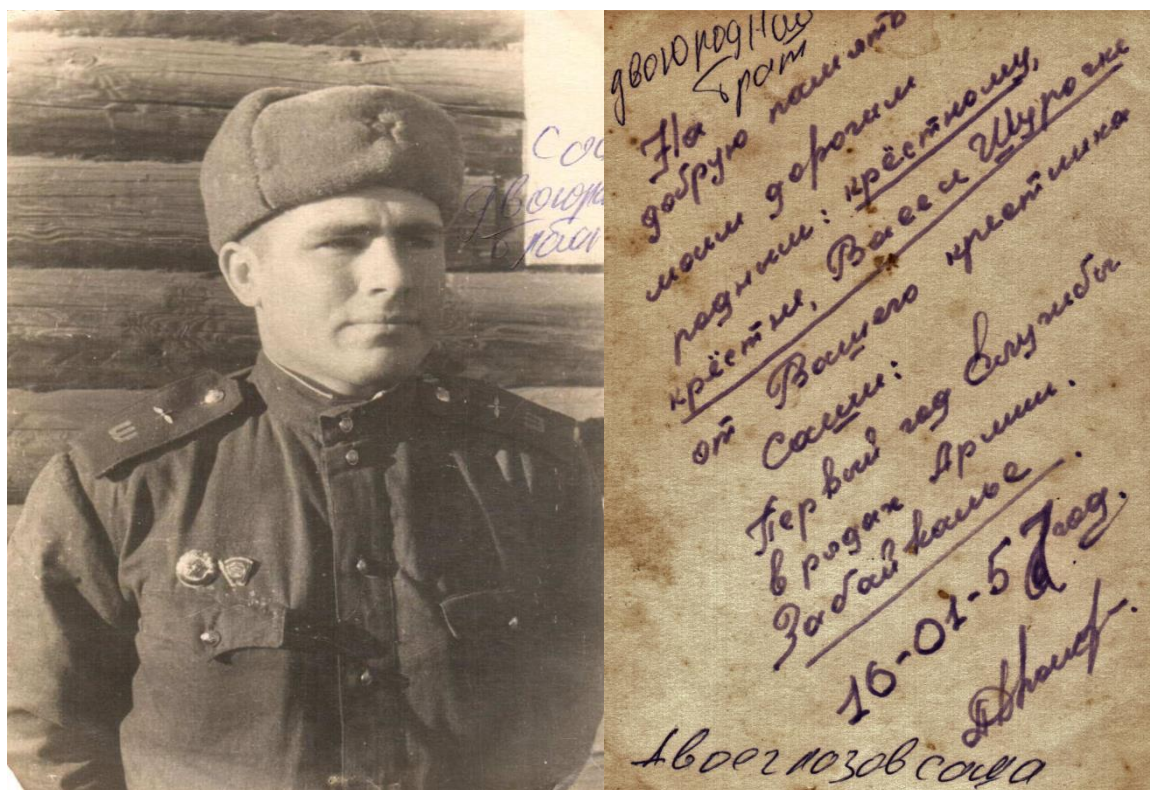 Со
двоюр
брат
двоюродной
брат
На
добрую память
моим дорогим
родным: крёстному,
крёстне, Васе и Шурочке
от Вашего крестника
Саши:
Первый год службы
в рядах Армии.
Забайкалье.
16-01-57 год.
Двоеглазов саша